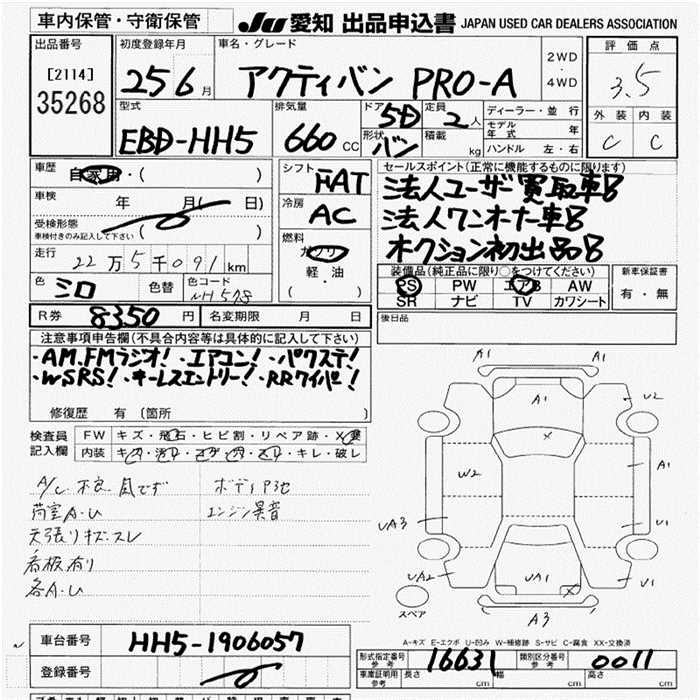 車内保管・守衛保管
JU 愛知 出品申込書 JAPAN USED CAR DEALERS ASSOCIATION
出品番号
[2114]
35268
初度登録年月
25 6 月
車名・グレード
アクティバン PRO-A
2WD
・
4WD
評価点
3.5
外装 内装
C C
型式
EBD-HH5
排気量
660 CC
ドア 5D
形状 バン
定員 2 人
積載 kg
ディーラー・並行
モデル年式 年
ハンドル 左・右
車歴
自家用・( )
車検 年 月( 日)
受検形態
車検付きのみ記入して下さい ( )
走行
22万5千091km
色 シロ 色替 色コード NH578
シフト FAT
冷房 AC
燃料
ガソリン
軽・油
( )
セールスポイント(正常に機能するものに限ります)
法人ユーザー買取車
法人ワンオーナー車
オークション初出品
装備品(純正品に限り○をつけてください)
PS PW エアB AW
SR ナビ TV カワシート
新車保証書
有・無
R券 8350 円 名変期限 月 日
後日品
注意事項申告欄(不具合内容等は具体的に記入して下さい)
・AM.FMラジオ!・エアコン!・パワステ!
・WSRS!・キーレスエントリー!・RRワイパー!
修復歴 有 (箇所 )
検査員記入欄
FW キズ・飛石・ヒビ割・リペア跡・X要
内装 キズ・汚レ・コゲ・穴・スレ・キレ・破レ
A/C 不良 風でず ボディP3切
荷室A.U エンジン異音
天張りキズ.スレ
看板有り
各A.U
A1 A1
A1 U2
W2 A1
UA3 U1
UA2 UA1 U1
A3
スペア
A-キズ E-エクボ U-凹み W-補修跡 S-サビ C-腐食 XX-交換済
車台番号 HH5-1906057
登録番号
形式指定番号 参考 16631
類別区分番号 参考 0011
車庫証明用 参考 長さ cm 幅 cm 高さ cm